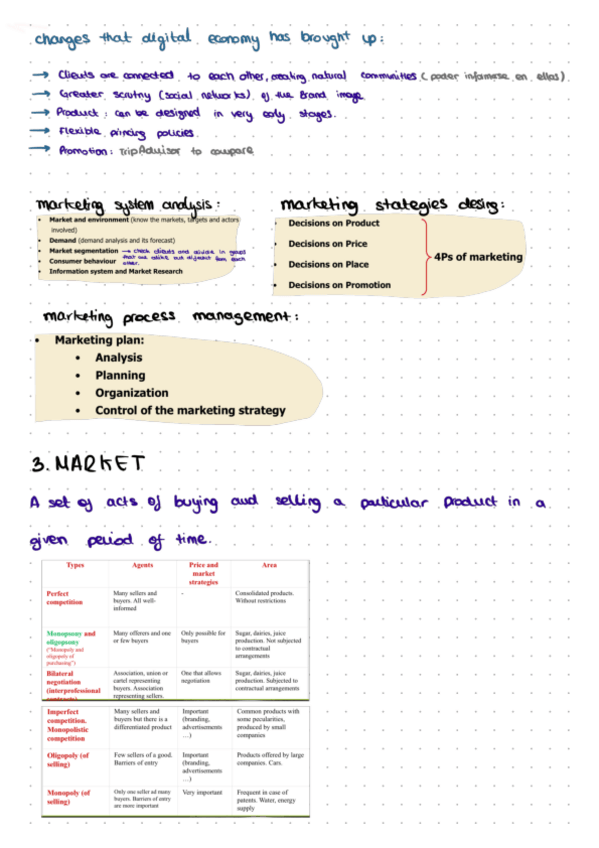 changes that digital economy has brought up:
→ Clients are connected to each other, creating natural communities (poder informarse en ellas)
→ Greater scrutny (social networks) of the Brand image
→ Product: can be designed in very early stages.
→ Flexible pricing policies.
→ Promotion: TripAdvisor to compare
marketing system analysis:
• Market and environment (know the markets, targets and actors
involved)
• Demand (demand analysis and its forecast)
• Market segmentation → check clients and divide in groups
that are alike and different from each
• Consumer behaviour
other.
• Information system and Market Research
marketing stategies desing:
• Decisions on Product
• Decisions on Price
• Decisions on Place
• Decisions on Promotion
4Ps of marketing
marketing process management:
• Marketing plan:
• Analysis
• Planning
• Organization
• Control of the marketing strategy
3. MARKET
A set of acts of buying and selling a particular product in a
given period of time.
Types Agents Price and market strategies Area
Perfect competition
Many sellers and buyers. All well-informed
-
Consolidated products. Without restrictions
Monopsony and oligopsony ("Monopoly and oligopoly of purchasing")
Many offerers and one or few buyers
Only possible for buyers
Sugar, dairies, juice production. Not subjected to contractual arrangements
Bilateral negotiation (interprofessional contracts)
Association, union or cartel representing buyers. Association representing sellers.
One that allows negotiation
Sugar, dairies, juice production. Subjected to contractual arrangements
Imperfect competition. Monopolistic competition
Many sellers and buyers but there is a differentiated product
Important (branding, advertisements …)
Common products with some pecularities, produced by small companies
Oligopoly (of selling)
Few sellers of a good. Barriers of entry
Important (branding, advertisements …)
Products offered by large companies. Cars.
Monopoly (of selling)
Only one seller ad many buyers. Barriers of entry are more important
Very important
Frequent in case of patents. Water, energy supply